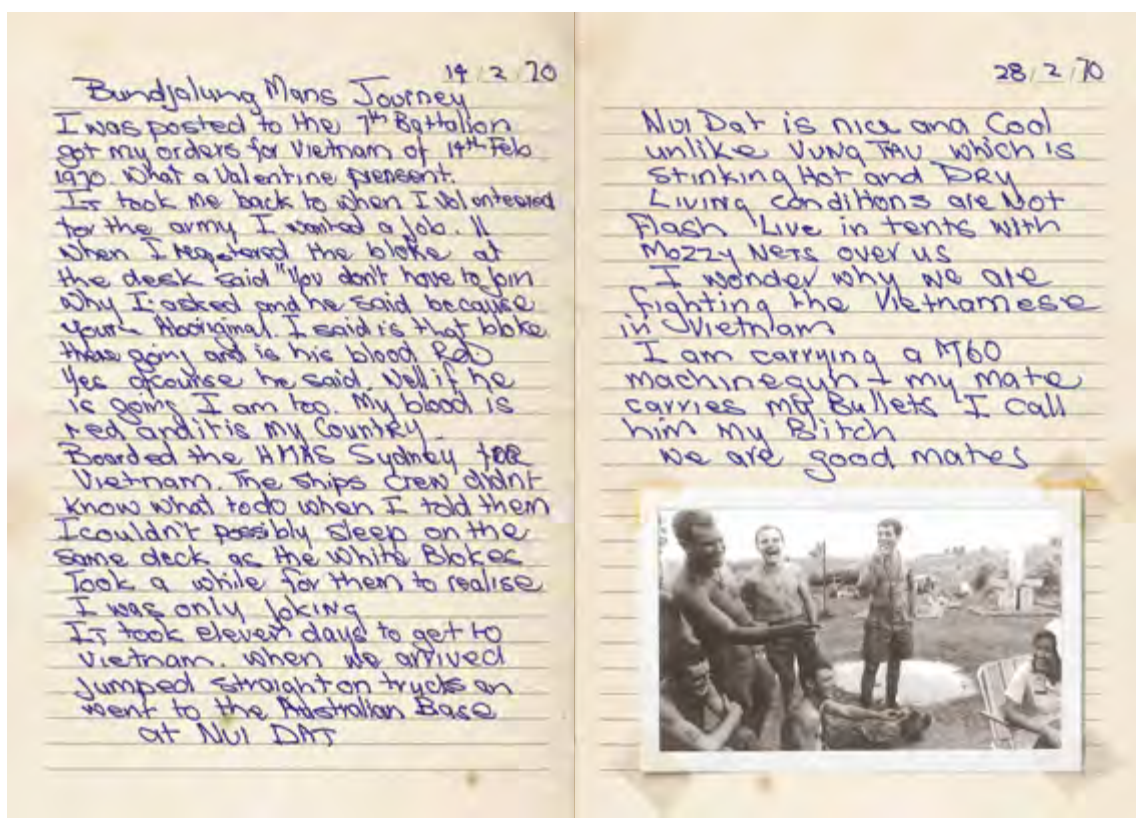 14/2/70
Bundjalung Mans Journey
I was posted to the 7th Battalion
got my orders for Vietnam of 14th Feb
1970. What a Valentine prensent.
It took me back to when I Volonteered
for the army I wanted a job.
When I regestered the bloke at
the desk said "You don't have to join
Why I asked and he said because
your Aboriginal. I said is that bloke
there going and is his blood ReD
Yes ofcourse he said. Well if he
is going I am too. My blood is
red and it is my Country.
Boarded the HMAS Sydney for
Vietnam. The Ships crew didnt
know what todo when I told them
I couldn't possibly sleep on the
same deck as the White Blokes
Took a while for them to realise
I was only Joking
It took eleven days to get to
Vietnam. When we arrived
Jumped straight on trucks an
went to the Australian Base
at NUI DAT
28/2/70
Nui Dat is nice and Cool
unlike VUNG TAU which is
Stinking Hot and DRY
Living conditions are Not
Flash Live in tents with
Mozzy Nets over us
I wonder why we are
fighting the Vietnamese
in Vietnam
I am carrying a M60
machinegun + my mate
carries my Bullets I call
him My Bitch
We are good mates